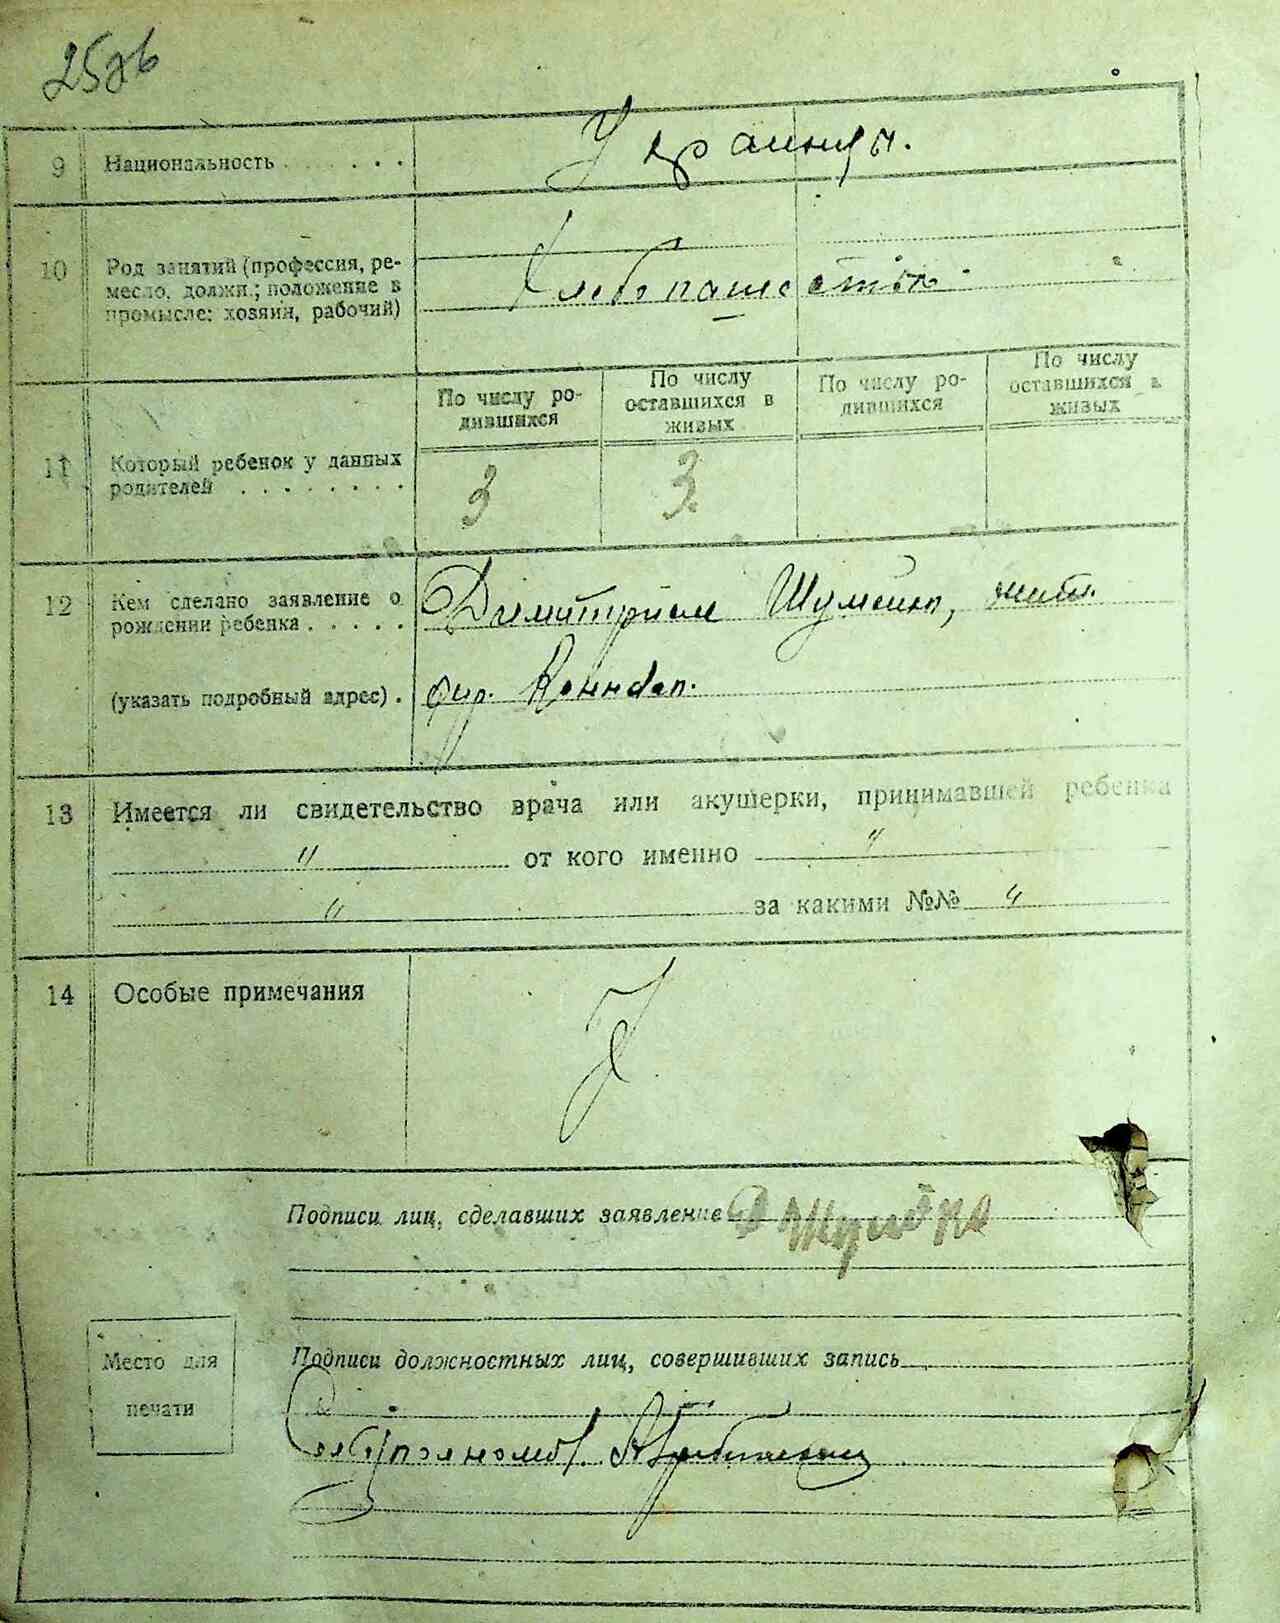 9 Национальность . . . . . . Украинцы.
10 Род занятий (профессия, ре-
месло, должн.; положение в
промысле: хозяин, рабочий)
Хлебопашество
По числу ро-
дившихся
По числу
оставшихся в
живых
По числу ро-
дившихся
По числу
оставшихся в
живых
11 Который ребенок у данных
родителей . . . . . . . .
3 3
12 Кем сделано заявление о
рождении ребенка . . . . .
Димитрием Шумейко, жит.
(указать подробный адрес) .
13 Имеется ли свидетельство врача или акушерки, принимавшей ребенка
" от кого именно "
" за какими №№ "
14 Особые примечания
Подписи лиц, сделавших заявление
Место для
печати
Подписи должностных лиц, совершивших запись